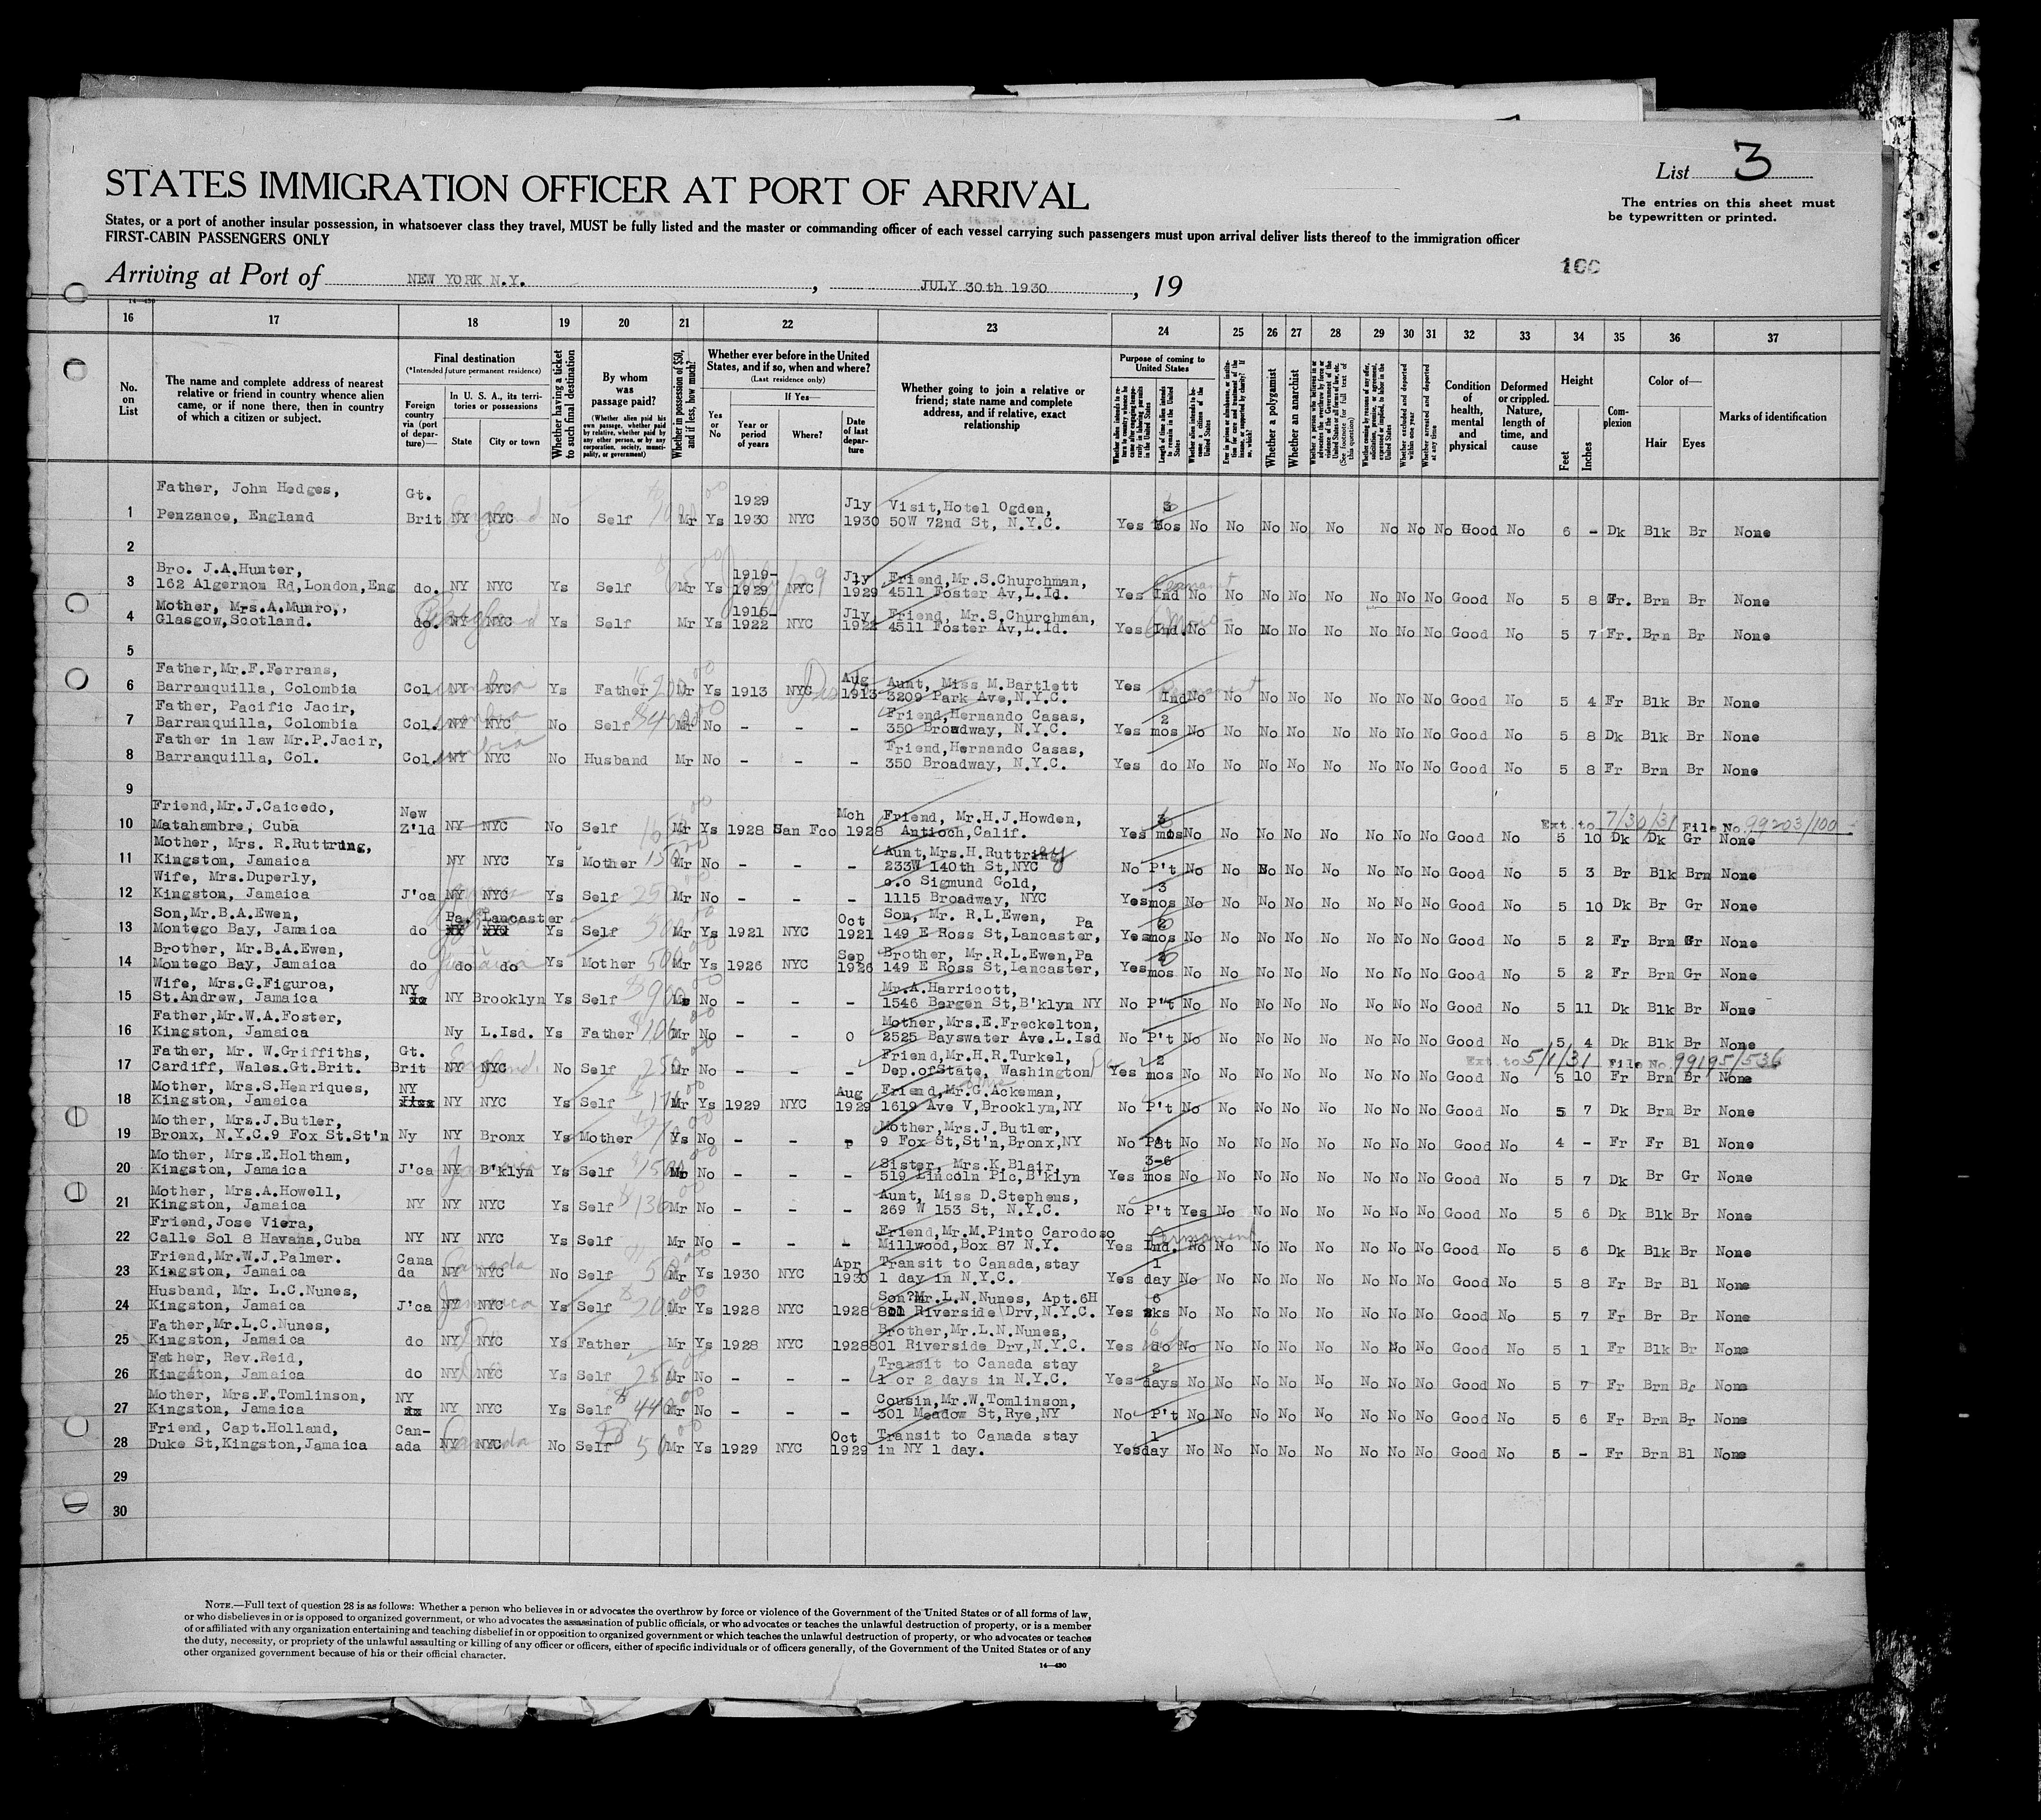 List 3
STATES IMMIGRATION OFFICER AT PORT OF ARRIVAL
The entries on this sheet must
be typewritten or printed.
States, or a port of another insular possession, in whatsoever class they travel, MUST be fully listed and the master or commanding officer of each vessel carrying such passengers must upon arrival deliver lists thereof to the immigration officer
FIRST-CABIN PASSENGERS ONLY
100
Arriving at Port of NEW YORK N.Y. , JULY 30th 1930 , 19
14-430
16 17 18 19 20 21 22 23 24 25 26 27 28 29 30 31 32 33 34 35 36 37
No. on List
The name and complete address of nearest relative or friend in country whence alien came, or if none there, then in country of which a citizen or subject.
Final destination
(*Intended future permanent residence)
Foreign country via (port of departure)—
In U. S. A., its territories or possessions
State City or town
Whether having a ticket to such final destination
By whom was passage paid?
(Whether alien paid his own passage, whether paid by relative, whether paid by any other person, or by any corporation, society, municipality, or government)
Whether in possession of $50, and if less, how much?
Whether ever before in the United States, and if so, when and where?
(Last residence only)
Yes or No
If Yes—
Year or period of years
Where?
Date of last departure
Whether going to join a relative or friend; state name and complete address, and if relative, exact relationship
Purpose of coming to United States
Length of time alien intends to remain in the United States
Whether alien intends to become a citizen of the United States
Whether a polygamist
Whether an anarchist
(See footnote for full text of this question)
Whether excluded and deported within one year
Whether arrested and deported at any time
Condition of health, mental and physical
Deformed or crippled. Nature, length of time, and cause
Height
Feet Inches
Complexion
Color of—
Hair Eyes
Marks of identification
1 Father, John Hedges, Penzance, England Gt. Brit NY NYC No Self Mr Ys 1929 1930 NYC Jly 1930 Visit,Hotel Ogden, 50W 72nd St, N.Y.C. Yes 3 mos No No No No No No No No Good No 6 - Dk Blk Br None
2
3 Bro. J.A.Hunter, 162 Algernom Rd,London,Eng do. NY NYC Ys Self Mr Ys 1919- 1929 NYC Jly 1929 Friend,Mr.S.Churchman, 4511 Foster Av,L.Id. Yes Ind No No No No No No No No Good No 5 8 Fr. Brn Br None
4 Mother, Mrs.A.Munro,, Glasgow,Scotland. do. NY NYC Ys Self Mr Ys 1916- 1922 NYC Jly 1922 Friend, Mr.S.Churchman, 4511 Foster Av,L.Id. Yes Ind. No No No No No No No No Good No 5 7 Fr. Brn Br None
5
6 Father,Mr.F.Ferrans, Barranquilla, Colombia Col NY NYC Ys Father Mr Ys 1913 NYC Aug 1913 Aunt, Miss M.Bartlett 3209 Park Ave,N.Y.C. Yes Ind No No No No No No No No Good No 5 4 Fr Blk Br None
7 Father, Pacific Jacir, Barranquilla, Colombia Col. NY NYC No Self Mr No - - - Friend,Hernando Casas, 350 Broadway, N.Y.C. Yes 2 mos No No No No No No No No Good No 5 8 Dk Blk Br None
8 Father in law Mr.P.Jacir, Barranquilla, Col. Col. NY NYC No Husband Mr No - - - Friend,Hernando Casas, 350 Broadway, N.Y.C. Yes do No No No No No No No No Good No 5 8 Fr Brn Br None
9
10 Friend,Mr.J.Caicedo, Matahambre, Cuba New Z'ld NY NYC No Self Mr Ys 1928 San Fco Mch 1928 Friend, Mr.H.J.Howden, Antioch,Calif. Yes mos No No No No No No No No Good No Ext. to 7/30/31 File No. 99203/100 5 10 Dk Dk Gr None
11 Mother, Mrs. R.Ruttring, Kingston, Jamaica NY NYC Ys Mother 150 Mr No - - - Aunt,Mrs.H.Ruttring 233W 140th St,NYC No P't No No No No No No No No Good No 5 3 Br Blk Brn None
12 Wife, Mrs.Duperly, Kingston, Jamaica J'ca NY NYC Ys Self 250 Mr No - - - c.o Sigmund Gold, 1115 Broadway, NYC Yes 3 mos No No No No No No No No Good No 5 10 Dk Br Gr None
13 Son,Mr.B.A.Ewen, Montego Bay, Jamaica do Pa. Lancaster Ys Self 500 Mr Ys 1921 NYC Oct 1921 Son, Mr. R.L.Ewen, Pa 149 E Ross St,Lancaster, Yes 6 mos No No No No No No No No Good No 5 2 Fr Brn Gr None
14 Brother, Mr.B.A.Ewen, Montego Bay, Jamaica do do do Ys Mother 500 Mr Ys 1926 NYC Sep 1926 Brother, Mr.R.L.Ewen,Pa 149 E Ross St,Lancaster, Yes mos No No No No No No No No Good No 5 2 Fr Brn Gr None
15 Wife, Mrs.G.Figuroa, St.Andrew, Jamaica NY NY Brooklyn Ys Self $900 No - - - Mr.A.Harricott, 1546 Bergen St,B'klyn NY No P't No No No No No No No No Good No 5 11 Dk Blk Br None
16 Father,Mr.W.A.Foster, Kingston, Jamaica Ny L.Isd. Ys Father $106 Mr No - - o Mother,Mrs.E.Freckelton, 2525 Bayswater Ave.L.Isd No P't No No No No No No No No Good No 5 4 Dk Blk Br None
17 Father, Mr. W.Griffiths, Cardiff, Wales.Gt.Brit. Gt. Brit NY NYC No Self 250 Mr No - - - Friend,Mr.H.R.Turkel, Dep.ofState, Washington Yes 2 mos No No No No No No No No Good No Ext. to 5/1/31 File No. 99195/536 5 10 Fr Brn Br None
18 Mother, Mrs.S.Henriques, Kingston, Jamaica NY NY NYC Ys Self Mr Ys 1929 NYC Aug 1929 Friend,Mr.G.Ackeman, 1619 Ave V,Brooklyn,NY No P't No No No No No No No No Good No 5 7 Dk Brn Br None
19 Mother, Mrs.J.Butler, Bronx, N.Y.C.9 Fox St.St'n Ny NY Bronx Ys Mother Ys No - - Mother,Mrs.J.Butler, 9 Fox St,St'n,Bronx,NY No No No No No No No No No Good No 4 - Fr Fr Bl None
20 Mother, Mrs.E.Holtham, Kingston, Jamaica J'ca NY B'klyn Ys Self $150 No - - - Sister, Mrs.K.Blair, 519 Lincoln Plc,B'klyn Yes 3-6 mos No No No No No No No No Good No 5 7 Dk Br Gr None
21 Mother, Mrs.A.Howell, Kingston, Jamaica NY NY NYC Ys Self $136 Mr No - - - Aunt, Miss D.Stephens, 269 W 153 St, N.Y.C. No P't Yes No No No No No No No Good No 5 6 Dk Blk Br None
22 Friend,Jose Viera, Calle Sol 8 Havana,Cuba NY NY NYC Ys Self Mr No - - - Friend,Mr.M.Pinto Carodoso Millwood,Box 87 N.Y. Yes Ind. Permanent No No No No No No No No Good No 5 6 Dk Blk Br None
23 Friend,Mr.W.J.Palmer. Kingston, Jamaica Cana da NY NYC Canada No Self 50 Mr Ys 1930 NYC Apr 1930 Transit to Canada,stay 1 day in N.Y.C. Yes 1 day No No No No No No No No Good No 5 8 Fr Br Bl None
24 Husband, Mr. L.C.Nunes, Kingston, Jamaica J'ca NY NYC Jamaica Ys Self $200 Mr Ys 1928 NYC 1928 Son?Mr.L.N.Nunes, Apt.6H 801 Riverside Drv,N.Y.C. Yes 6 No No No No No No No No Good No 5 7 Fr Br Br None
25 Father,Mr.L.C.Nunes, Kingston, Jamaica do NY NYC Ys Father Mr Ys 1928 NYC 1928 Brother,Mr.L.N.Nunes, 801 Riverside Drv,N.Y.C. Yes do No No No No No No No No Good No 5 1 Fr Blk Br None
26 Father, Rev.Reid, Kingston, Jamaica do NY NYC Ys Self 250 Mr No - - - Transit to Canada stay 1 or 2 days in N.Y.C. Yes 2 days No No No No No No No No Good No 5 7 Fr Brn Br None
27 Mother, Mrs.F.Tomlinson, Kingston, Jamaica NY NY NYC Ys Self $440 Mr No - - - Cousin,Mr.W.Tomlinson, 301 Meadow St,Rye,NY No P't No No No No No No No No Good No 5 6 Fr Brn Br None
28 Friend, Capt.Holland, Duke St,Kingston,Jamaica Can- ada NY NYC Canada No Self 50 Mr Ys 1929 NYC Oct 1929 Transit to Canada stay in NY 1 day. Yes 1 day No No No No No No No No Good No 5 - Fr Brn Bl None
29
30
NOTE.—Full text of question 28 is as follows: Whether a person who believes in or advocates the overthrow by force or violence of the Government of the United States or of all forms of law,
or who disbelieves in or is opposed to organized government, or who advocates the assassination of public officials, or who advocates or teaches the unlawful destruction of property, or is a member
of or affiliated with any organization entertaining and teaching disbelief in or opposition to organized government or which teaches the unlawful destruction of property, or who advocates or teaches
the duty, necessity, or propriety of the unlawful assaulting or killing of any officer or officers, either of specific individuals or of officers generally, of the Government of the United States or of any
other organized government because of his or their official character.
14-430